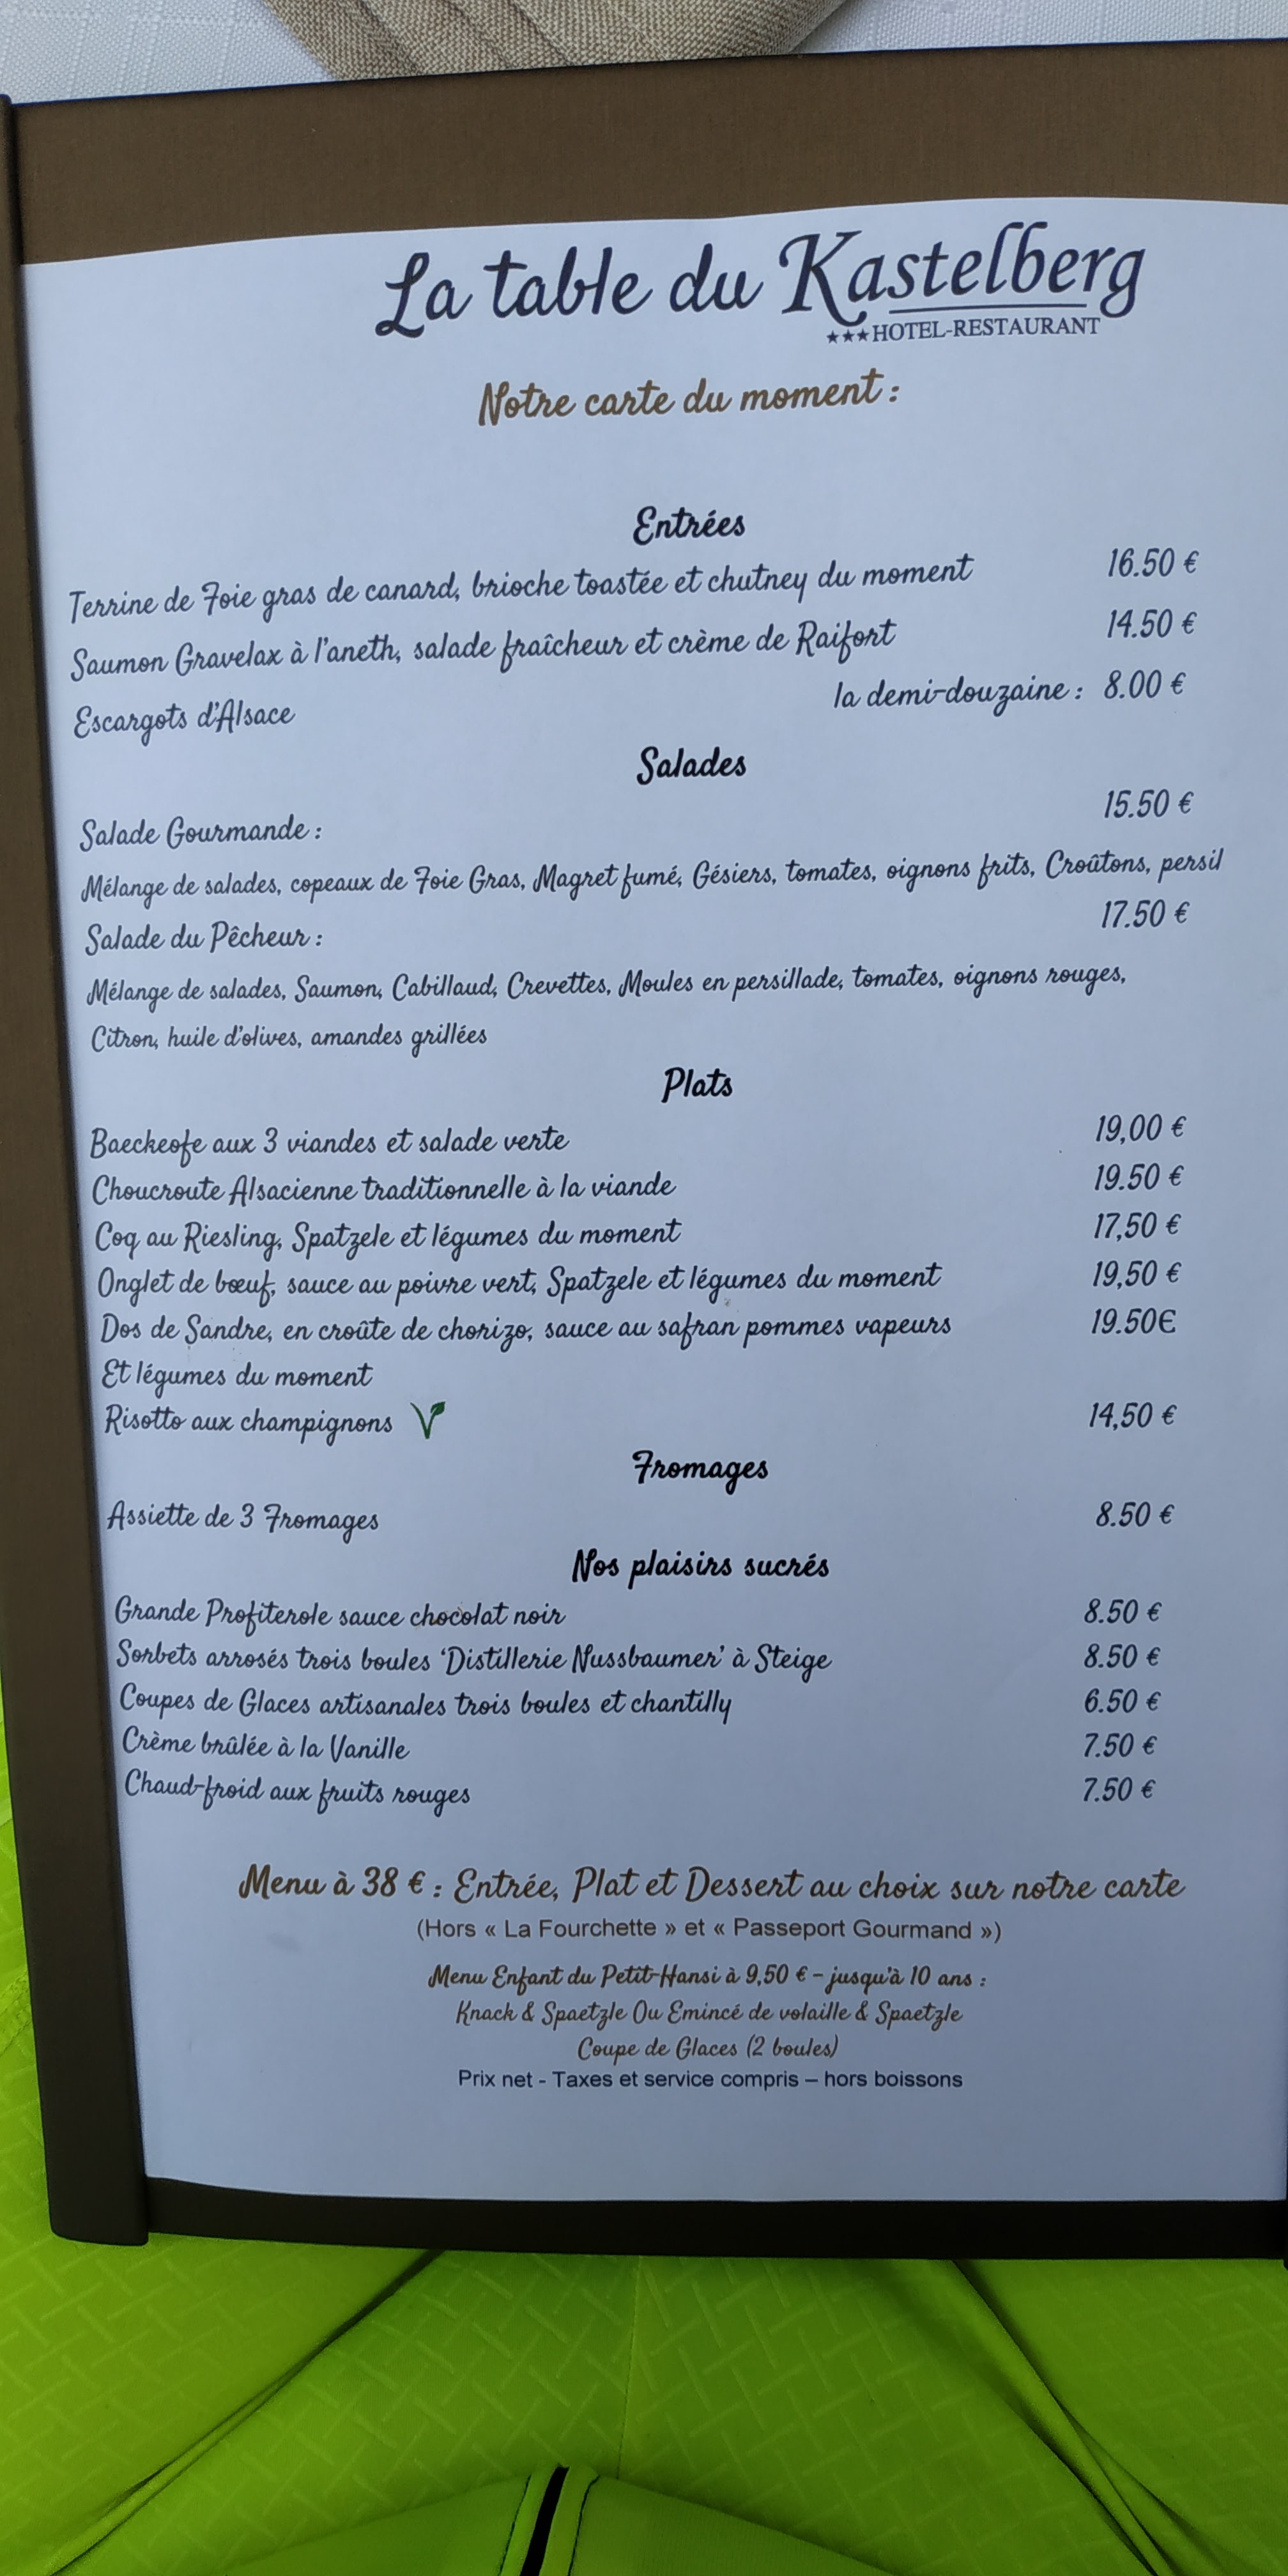 La table du Kastelberg
★★★HOTEL-RESTAURANT
Notre carte du moment :
Entrées
Terrine de Foie gras de canard, brioche toastée et chutney du moment 16.50 €
Saumon Gravelax à l'aneth, salade fraîcheur et crème de Raifort 14.50 €
Escargots d'Alsace la demi-douzaine : 8.00 €
Salades
Salade Gourmande : 15.50 €
Mélange de salades, copeaux de Foie Gras, Magret fumé, Gésiers, tomates, oignons frits, Croûtons, persil
Salade du Pêcheur : 17.50 €
Mélange de salades, Saumon, Cabillaud, Crevettes, Moules en persillade, tomates, oignons rouges,
Citron, huile d'olives, amandes grillées
Plats
Baeckeofe aux 3 viandes et salade verte 19,00 €
Choucroute Alsacienne traditionnelle à la viande 19.50 €
Coq au Riesling, Spatzele et légumes du moment 17,50 €
Onglet de bœuf, sauce au poivre vert, Spatzele et légumes du moment 19,50 €
Dos de Sandre, en croûte de chorizo, sauce au safran pommes vapeurs 19.50€
Et légumes du moment
Risotto aux champignons 14,50 €
Fromages
Assiette de 3 Fromages 8.50 €
Nos plaisirs sucrés
Grande Profiterole sauce chocolat noir 8.50 €
Sorbets arrosés trois boules 'Distillerie Nussbaumer' à Steige 8.50 €
Coupes de Glaces artisanales trois boules et chantilly 6.50 €
Crème brûlée à la Vanille 7.50 €
Chaud-froid aux fruits rouges 7.50 €
Menu à 38 € : Entrée, Plat et Dessert au choix sur notre carte
(Hors « La Fourchette » et « Passeport Gourmand »)
Menu Enfant du Petit-Hansi à 9,50 € – jusqu'à 10 ans :
Knack & Spaetzle Ou Emincé de volaille & Spaetzle
Coupe de Glaces (2 boules)
Prix net - Taxes et service compris – hors boissons